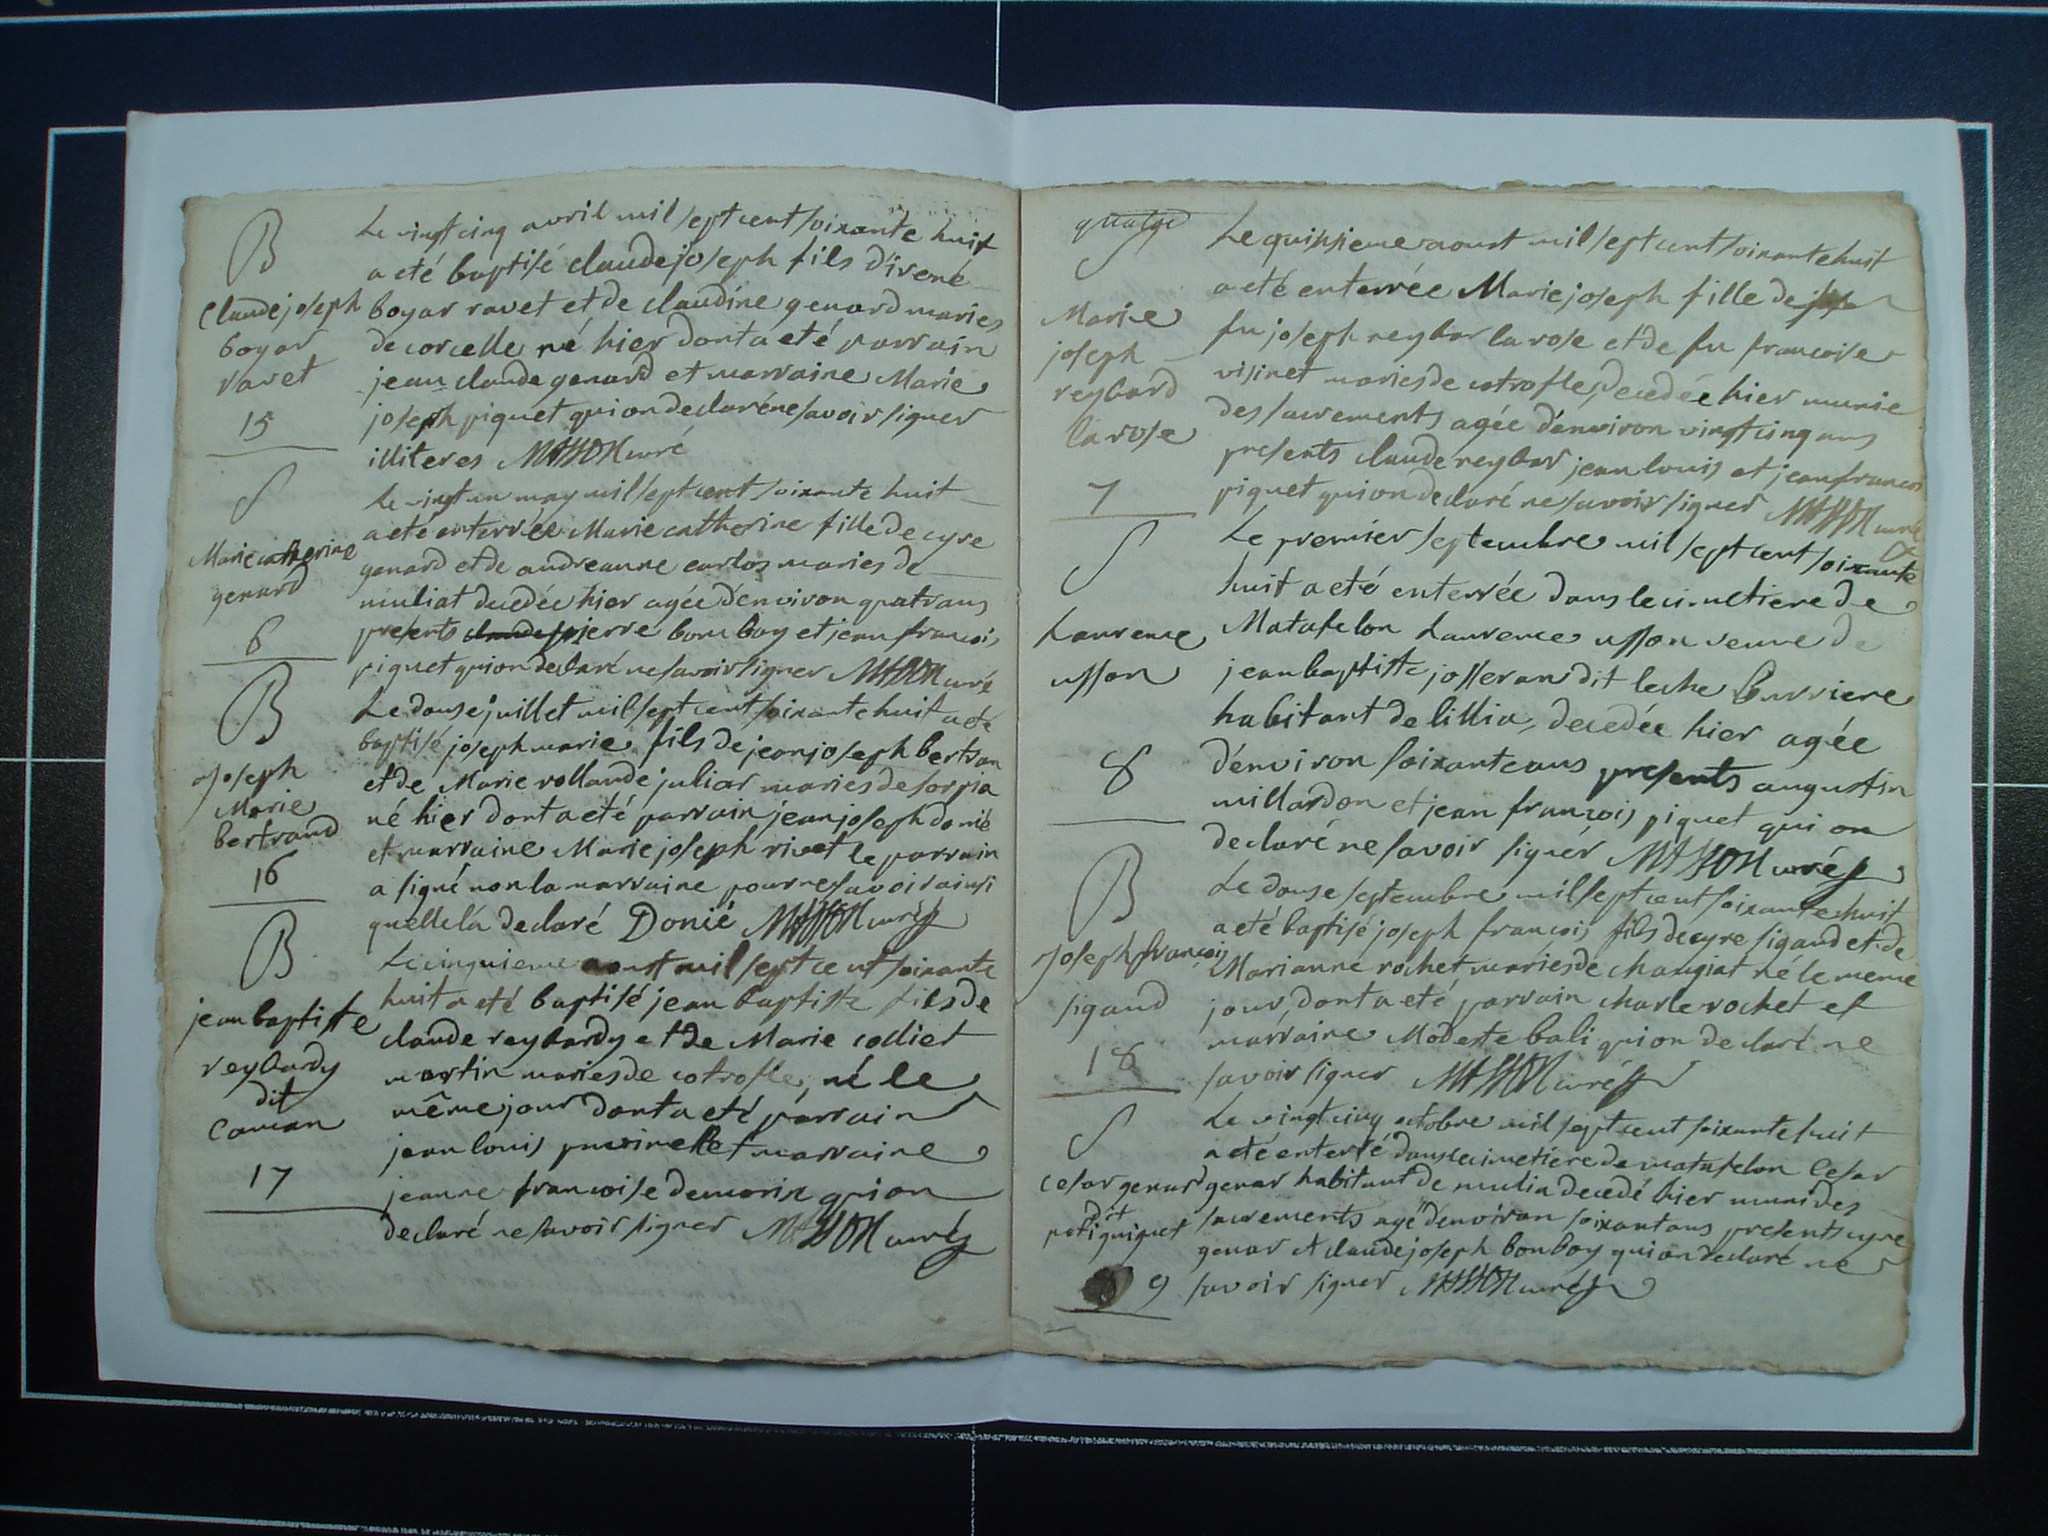 B
Claude joseph
boyar
ravet
15
Le vingt cinq avril mil sept cent soixante huit
a eté baptisé claude joseph fils d'irené
boyar ravet et de claudine genard maries
de corcelle né hier dont a eté parrain
jean claude genard et marraine Marie
joseph piquet qui on declaré ne savoir signer
illiteres MASSON curé
S
Marie catherine
genard
6
Le vingt un may mil sept cent soixante huit
a eté enterrée Marie catherine fille de cyre
genard et de andreanne carlos maries de
muliat decedée hier agée d'environ quatr ans
presents claude pierre bomboy et jean francois
piquet qui on declaré ne savoir signer MASSON curé
B
Joseph
Marie
bertrand
16
Le douse juillet mil sept cent soixante huit a eté
baptisé joseph marie fils de jean joseph bertran
et de Marie rollande juliar maries de sorpia
né hier dont a eté parrain jean joseph donié
et marraine Marie joseph rivet le parrain
a signé non la marraine pour ne savoir ainsi
quelle la declaré Donié MASSON curé
B
jean baptiste
reybardy
dit
Coman
17
Le cinquieme aoust mil sept cent soixante
huit a eté baptisé jean baptiste fils de
claude reybardy et de Marie colliet
martin maries de cotrofle, né le
même jour dont a eté parrain
jean louis et marraine
jeanne francoise demorin qui on
declaré ne savoir signer MASSON curé
quatre
S
Marie
joseph
reybard
la rose
7
Le quinsieme aoust mil sept cent soixante huit
a eté enterrée Marie joseph fille de
fu joseph reybar la rose et de fu francoise
visinet maries de cotrofle, decedée hier munie
des sacrements agée d'environ vingt cinq ans
presents claude reybar jean louis et jean francois
piquet qui on declaré ne savoir signer MASSON curé
S
Laurence
usson
8
Le premier septembre mil sept cent soixante
huit a eté enterrée dans le cimetiere de
Matafelon Laurence usson veuve de
jean baptiste josseran dit leche burriere
habitant de lillia, decedée hier agée
d'environ soixante ans presents augustin
millardon et jean francois piquet qui on
declaré ne savoir signer MASSON curé
B
Joseph francois
sigand
18
Le douse septembre mil sept cent soixante huit
a eté baptisé joseph francois fils de cyre sigand et de
Marianne rochet maries de changiat né le meme
jour, dont a eté parrain charle rochet et
marraine Modeste bali qui on declaré ne
savoir signer MASSON curé
S
cesar genard
dit
petiguiguet
9
Le vingt cinq octobre mil sept cent soixante huit
a eté enterré dans le cimetiere de matafelon Cesar
genar habitant de mulia decedé hier muni des
sacrements agé d'environ soixant ans presents cyre
genar et claude joseph bonboy qui on declaré ne
savoir signer MASSON curé